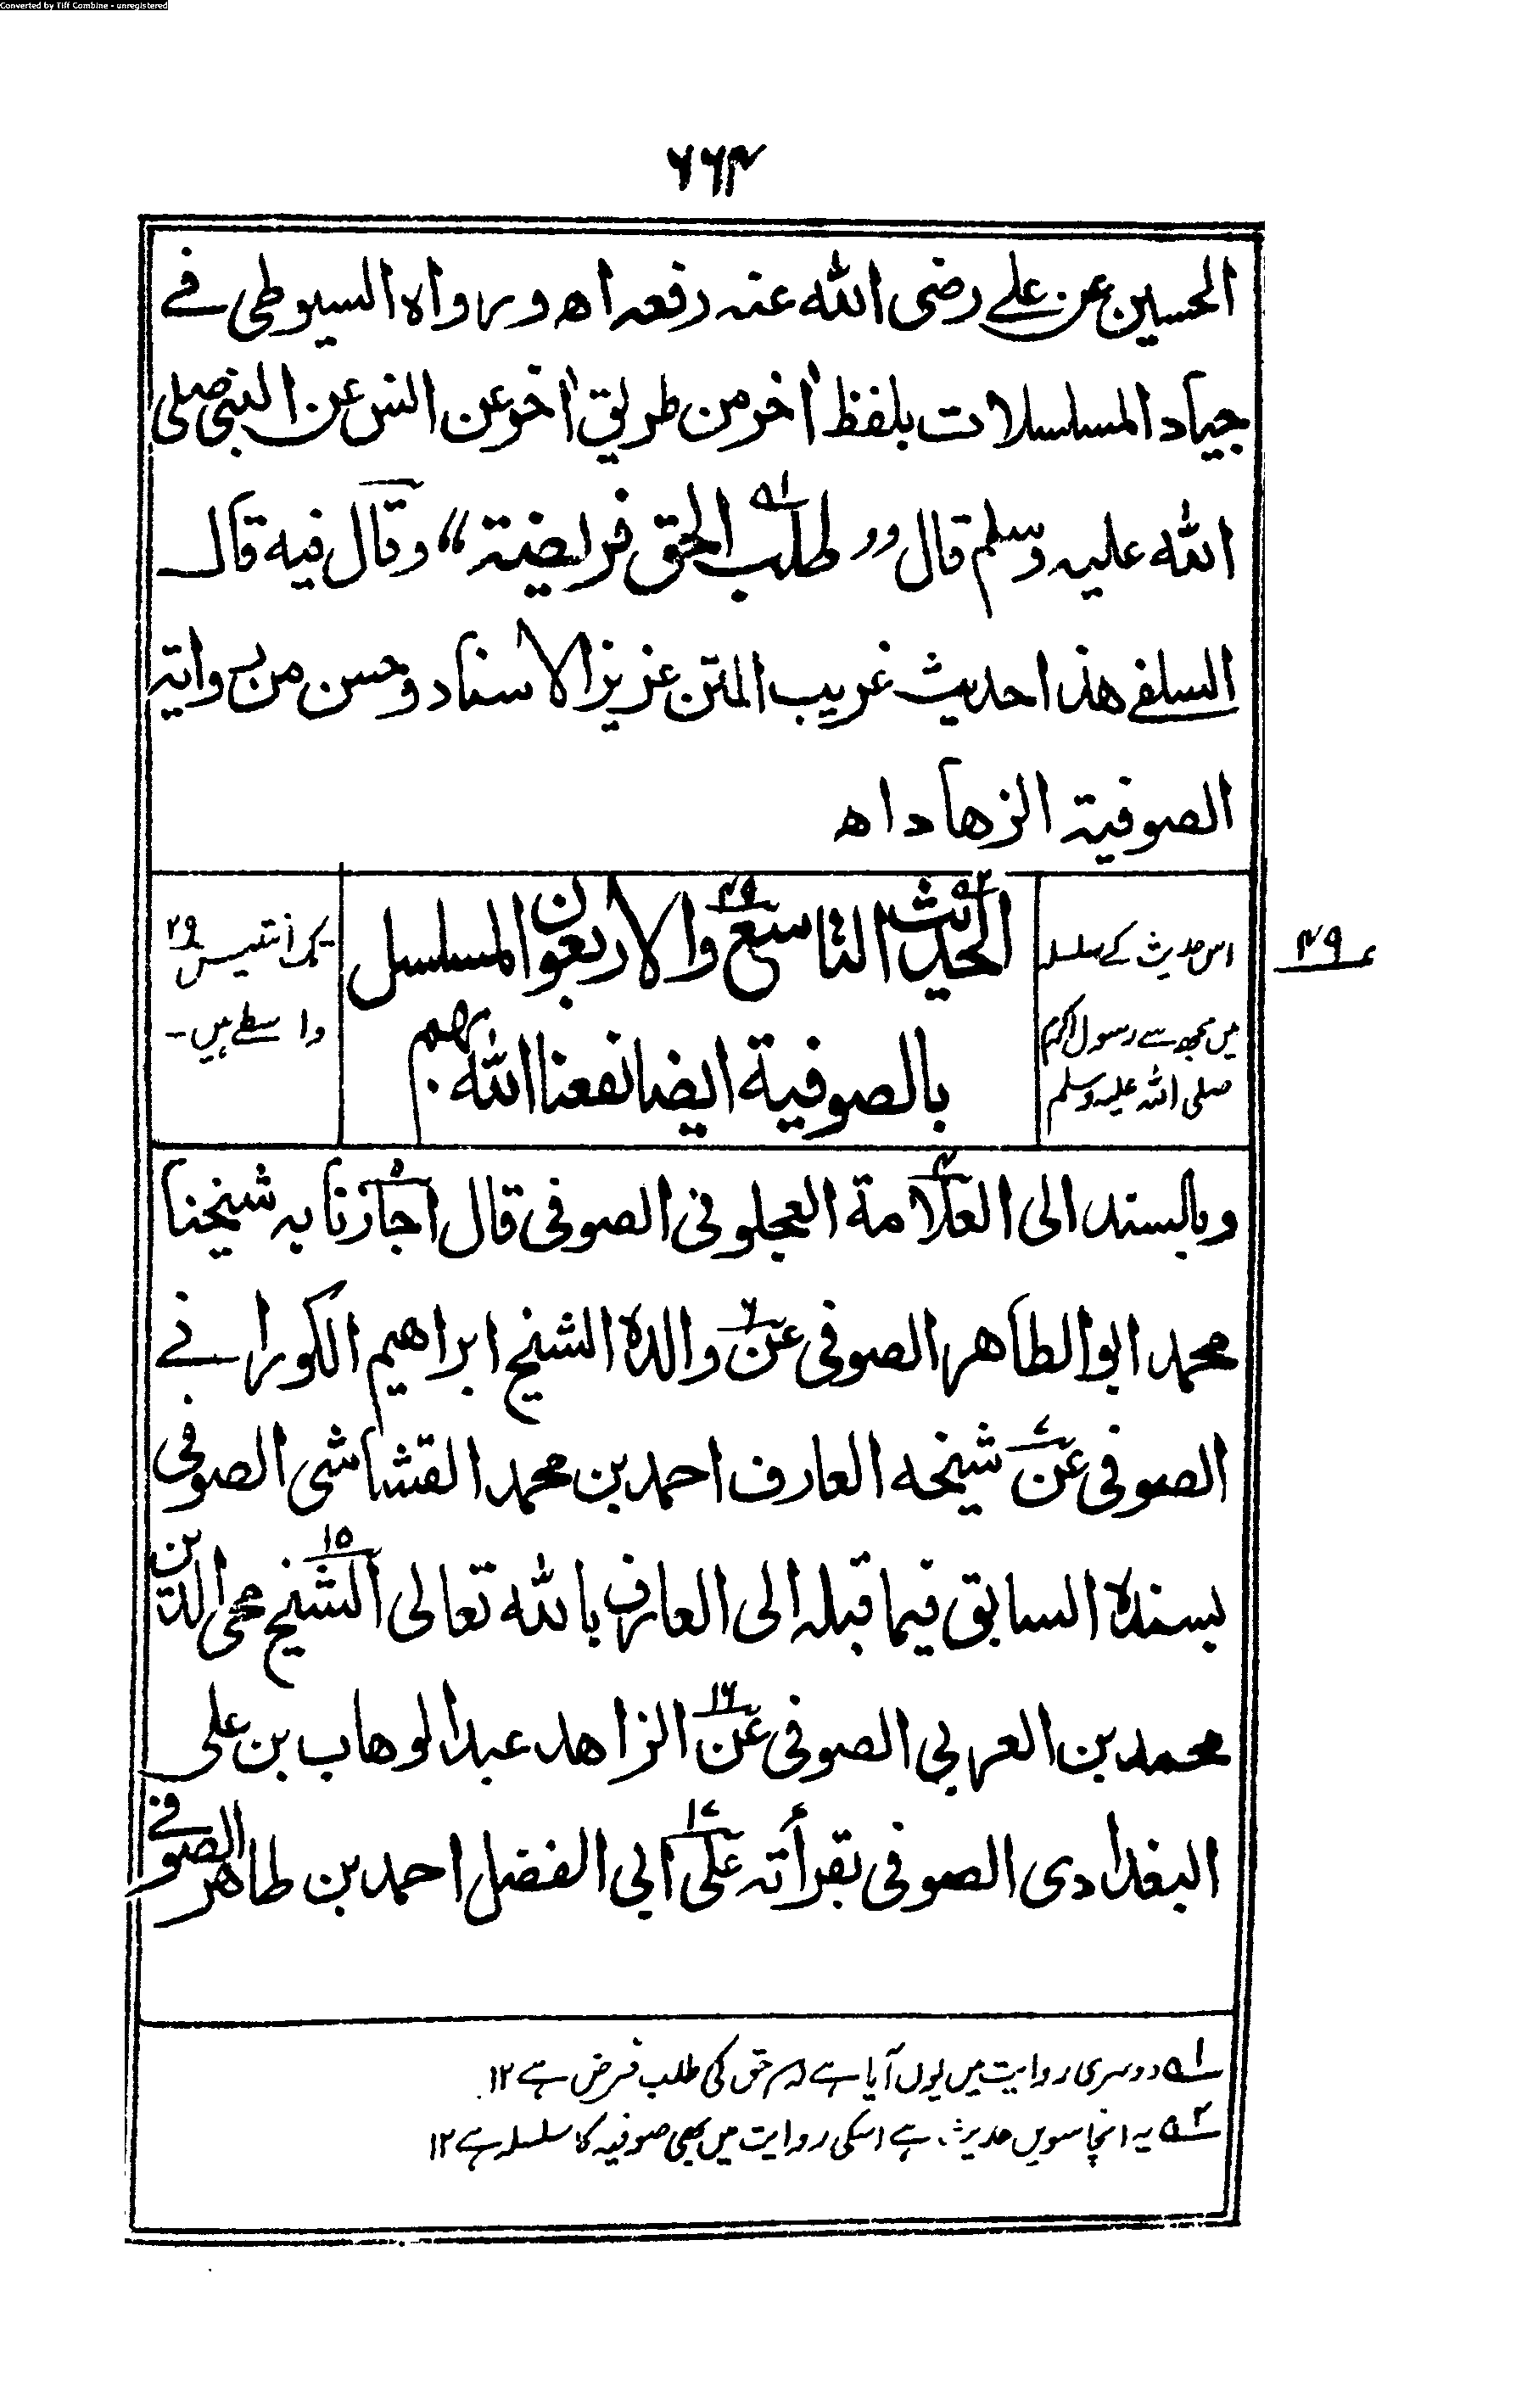 Converted by Tiff Combine - unregistered
۶۶۴
الحسين عن علے رضی الله عنه رفعه اه ورواه السيوطی فے
جياد المسلسلات بلفظ اٰخر من طريق اٰخر عن انس عن النبی صلی
الله عليه وسلم قال ,, طلب الحق فريضة“ وقال فيه قال
السلفے هذا حديث غريب المتن عزيز الاسناد وحسن من رواية
الصوفية الزهاد اه
۴۹
اس حدیث کے سلسلہ
میں مجھ سے رسول اکرم
صلی اللہ علیہ وسلم
الحديث التاسع والاربعون المسلسل
بالصوفية ايضا نفعنا الله بهم
تک انتیس ۲۹
واسطے ہیں ۔
وبالسند الی العلامة العجلونی الصوفی قال اجازنا به شيخنا
محمد ابو الطاهر الصوفی عن والده الشيخ ابراهيم الكورانے
الصوفی عن شيخه العارف احمد بن محمد القشاشی الصوفی
بسنده السابق فيما قبله الی العارف بالله تعالی الشيخ محی الدين
محمد بن العربی الصوفی عن الزاهد عبد الوهاب بن علی
البغدادی الصوفی بقرأته علی ابی الفضل احمد بن طاهر الصوفے
۱ـہ دوسری روایت میں یوں آیا ہے کہ حق کی طلب فرض ہے ۱۲
۲ـہ یہ انچاسویں حدیث ہے اسکی روایت میں بھی صوفیہ کا سلسلہ ہے ۱۲